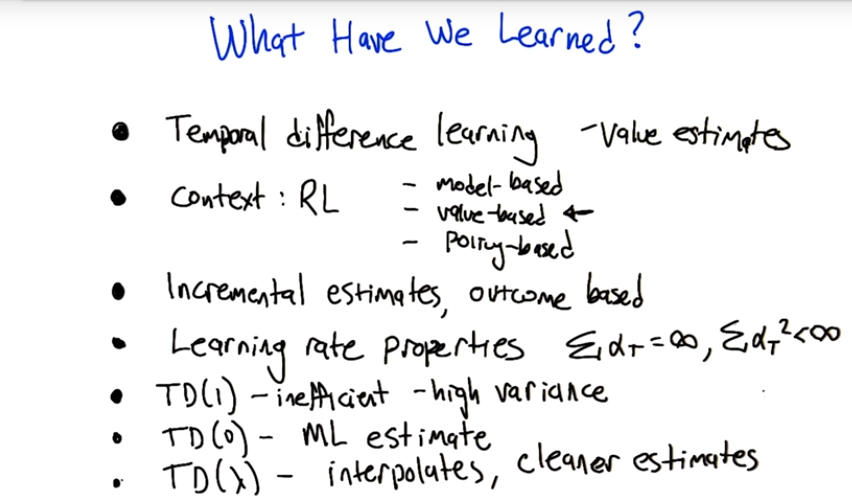 What Have We Learned?
• Temporal difference learning - Value estimates
• Context : RL - model-based
- value-based ←
- Policy-based
• Incremental estimates, outcome based
• Learning rate properties Σ α_T = ∞, Σ α_T² < ∞
• TD(1) - inefficient - high variance
• TD(0) - ML estimate
• TD(λ) - interpolates, cleaner estimates